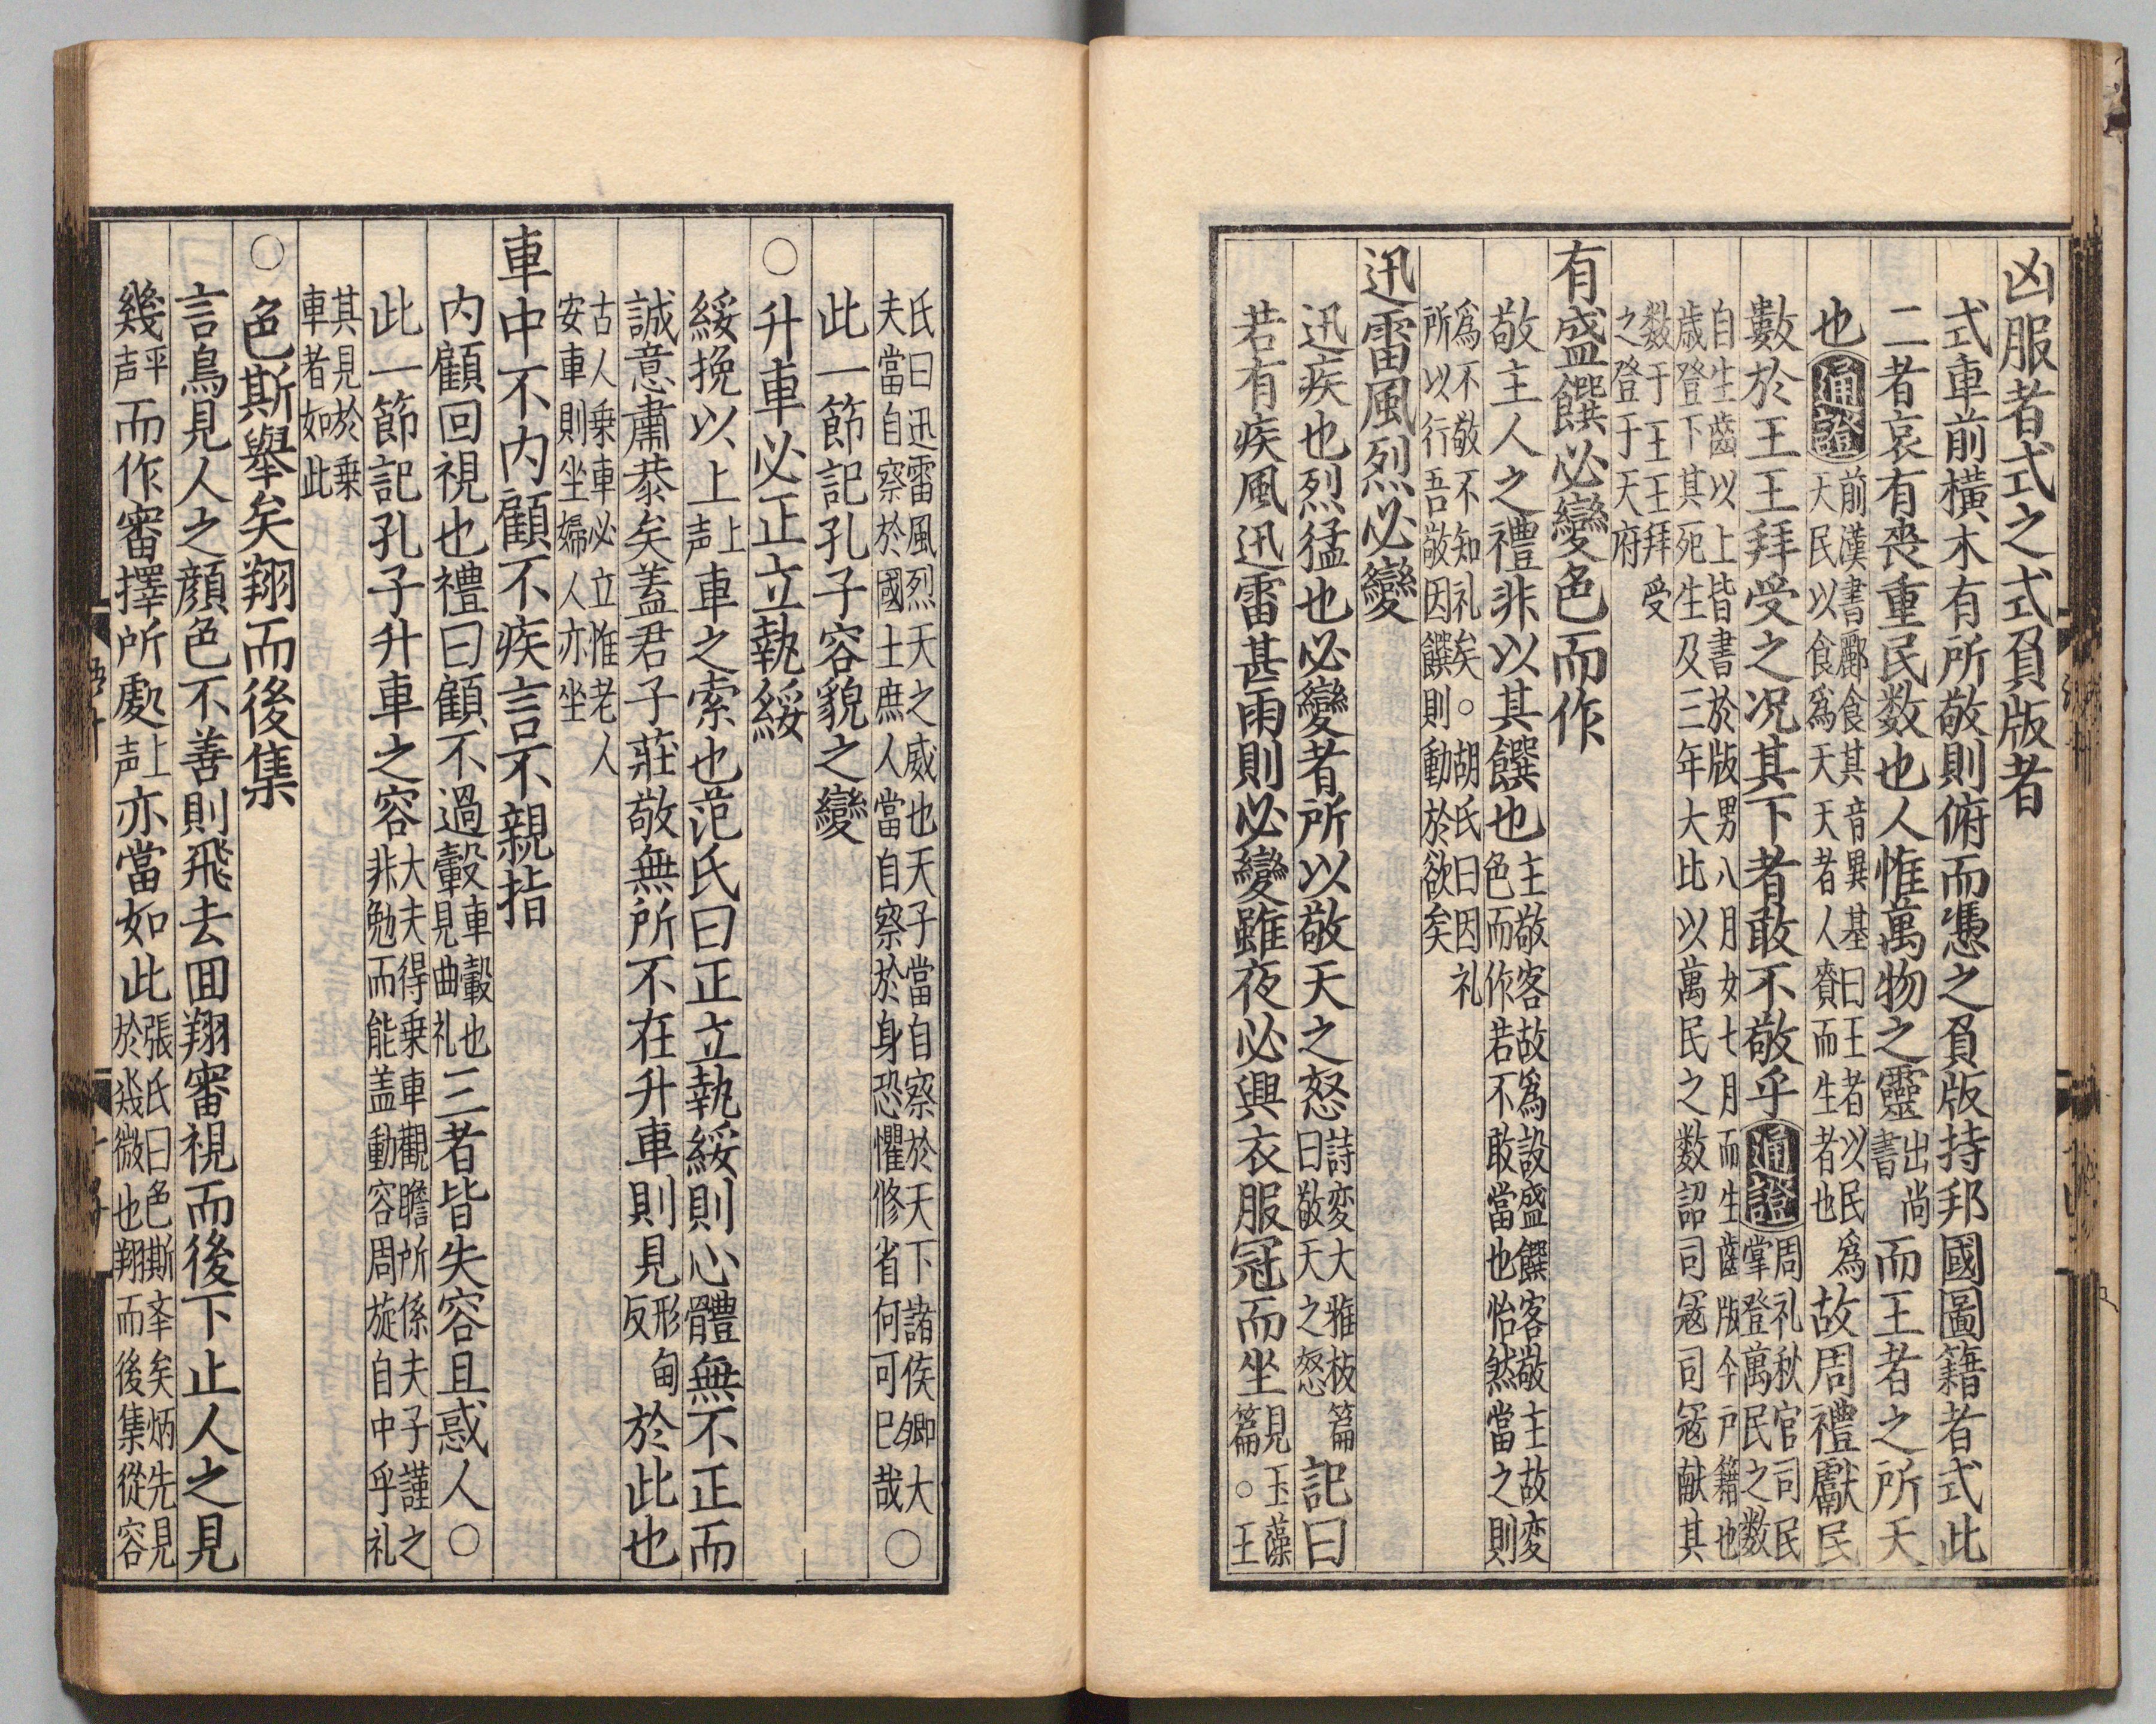 凶服者式之式負版者
式車前橫木有所敬則俯而憑之負版持邦國圖籍者式此
二者哀有喪重民数也人惟萬物之靈出尚書而王者之所天
也通證前漢書酈食其音異基曰王者以民爲大民以食爲天天者人賚而生者也故周禮獻民
數於王王拜受之況其下者敢不敬乎通證周礼秋官司民掌登萬民之数
自生齒以上皆書於版男八月女七月而生齒版今戶籍也歲登下其死生及三年大比以萬民之数詔司冦司冦献其
数于王王拜受之登于天府
有盛饌必變色而作
敬主人之禮非以其饌也主敬客故爲設盛饌客敬主故変色而作若不敢當也怡然當之則
爲不敬不知礼矣○胡氏曰因礼所以行吾敬因饌則動於欲矣
迅雷風烈必變
迅疾也烈猛也必變者所以敬天之怒詩変大雅板篇曰敬天之怒記曰
若有疾風迅雷甚雨則必變雖夜必興衣服冠而坐見玉藻篇○王
氏曰迅雷風烈天之威也天子當自察於天下諸侯卿大夫當自察於國士庶人當自察於身恐懼修省何可已哉○
此一節記孔子容貌之變
○升車必正立執綏
綏挽以上上声車之索也范氏曰正立執綏則心體無不正而
誠意肅恭矣蓋君子莊敬無所不在升車則見形甸反於此也
古人乗車必立惟老人安車則坐婦人亦坐
車中不内顧不疾言不親指
内顧回視也禮曰顧不過轂車轂也見曲礼三者皆失容且惑人○
此一節記孔子升車之容大夫得乗車觀瞻所係夫子謹之非勉而能盖動容周旋自中乎礼
其見於乗車者如此
○色斯舉矣翔而後集
言鳥見人之顏色不善則飛去囬翔審視而後下止人之見
幾平声而作審擇所處上声亦當如此張氏曰色斯夆矣炳先見於㡬微也翔而後集從容